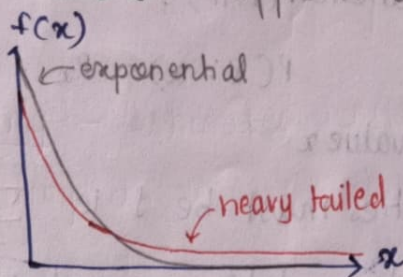 f(x)
exponential
heavy tailed
x